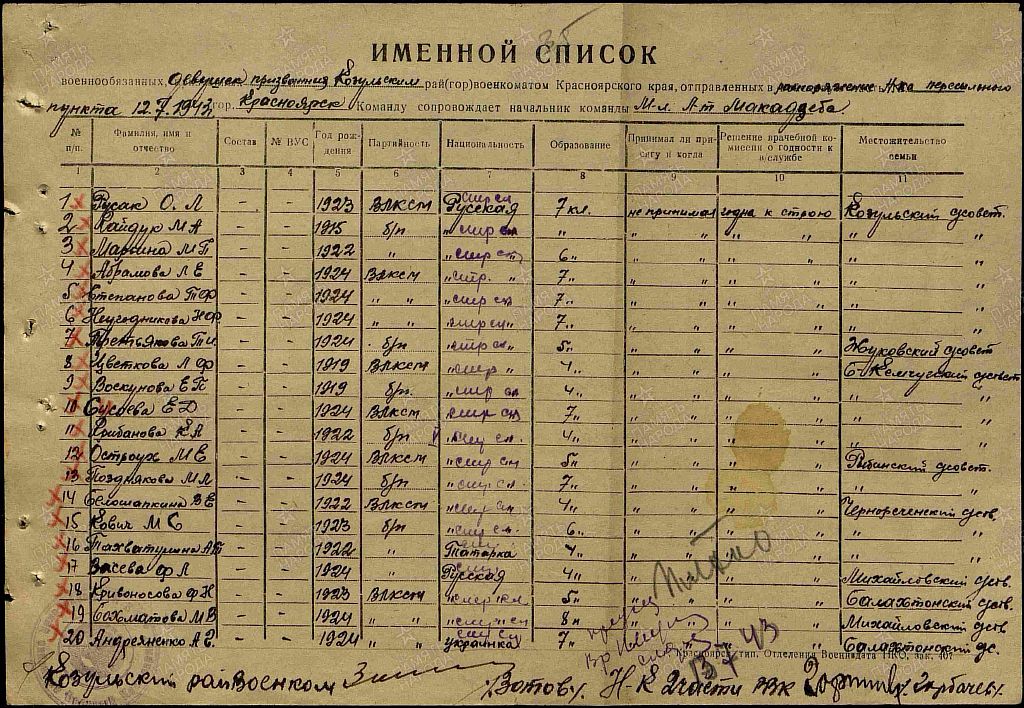 ИМЕННОЙ СПИСОК
военнообязанных, девушек призванных Козульским рай(гор)военкоматом Красноярского края, отправленных в распоряжение Н-ка пересыльного
пункта 12.7.1943 гор. Красноярск Команду сопровождает начальник команды Мл. Л-т
№ п/п. Фамилия, имя и отчество Состав № ВУС Год рождения Партийность Национальность Образование Принимал ли присягу и когда Решение врачебной комиссии о годности к в/службе Местожительство семьи
1 2 3 4 5 6 7 8 9 10 11
1 Русак О. Л - - 1923 ВЛКСМ Русская 7 кл. не принимал годна к строю Козульский с/совет.
2 Кайдук М А - - 1915 б/п " " " " " "
3 Марьина М П - - 1922 " " 6 " " " " "
4 Абрамова Л Е - - 1924 ВЛКСМ " 7 " " " " "
5 Степанова Т Ф - - 1924 " " " 7 " " " " "
6 Неугодникова Н Ф - - 1924 " " " 7 " " " " "
7 Третьякова Т И - - 1924 б/п " 5 " " " " Жуковский с/совет
8 Цветкова Л Ф - - 1919 ВЛКСМ " 4 " " " " Б-Кемчугский с/совет
9 Воскунова Е П - - 1919 б/п " 4 " " " " "
10 Сусоева Е Д - - 1924 ВЛКСМ 7 " " " " "
11 Грибанова К А - - 1922 б/п " 4 " " " " "
12 Остроух М Е - - 1924 ВЛКСМ " 5 " " " " Рыбинский с/совет.
13 Позднякова М Л - - 1924 б/п " 7 " " " " " "
14 Белошапкина В Е - - 1922 ВЛКСМ " 4 " " " " Чернореченский с/сов.
15 Кович М С - - 1923 б/п " 6 " " " " "
16 - - 1922 " Татарка 4 " " " " "
17 Васева Ф Л - - 1924 " Русская 4 " " " " Михайловский с/сов.
18 Кривоносова Ф Н - - 1923 ВЛКСМ " 5 " " " " Балахтонский с/сов.
19 Бахматова М В - - 1924 " " " 8 " " " Михайловский с/сов
20 Андреяненко А Г. - - 1924 " " украинка 7 " Балахтонский с/с.
Красноярск, тип. Отделения Воениздата НКО, зак. 407
13 7 43
Козульский райвоенком /Зотов/. Н-к 2 части РВК /Горбачев/.
ПАМЯТЬ НАРОДА